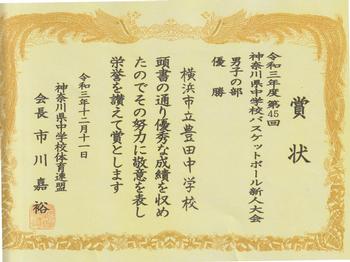 賞状
令和三年度第45回
神奈川県中学校バスケットボール新人大会
男子の部
優勝
横浜市立豊田中学校
頭書の通り優秀な成績を収め
たのでその努力に敬意を表し
栄誉を讃えて賞とします
令和三年十二月十一日
神奈川県中学校体育連盟
会長市川嘉裕